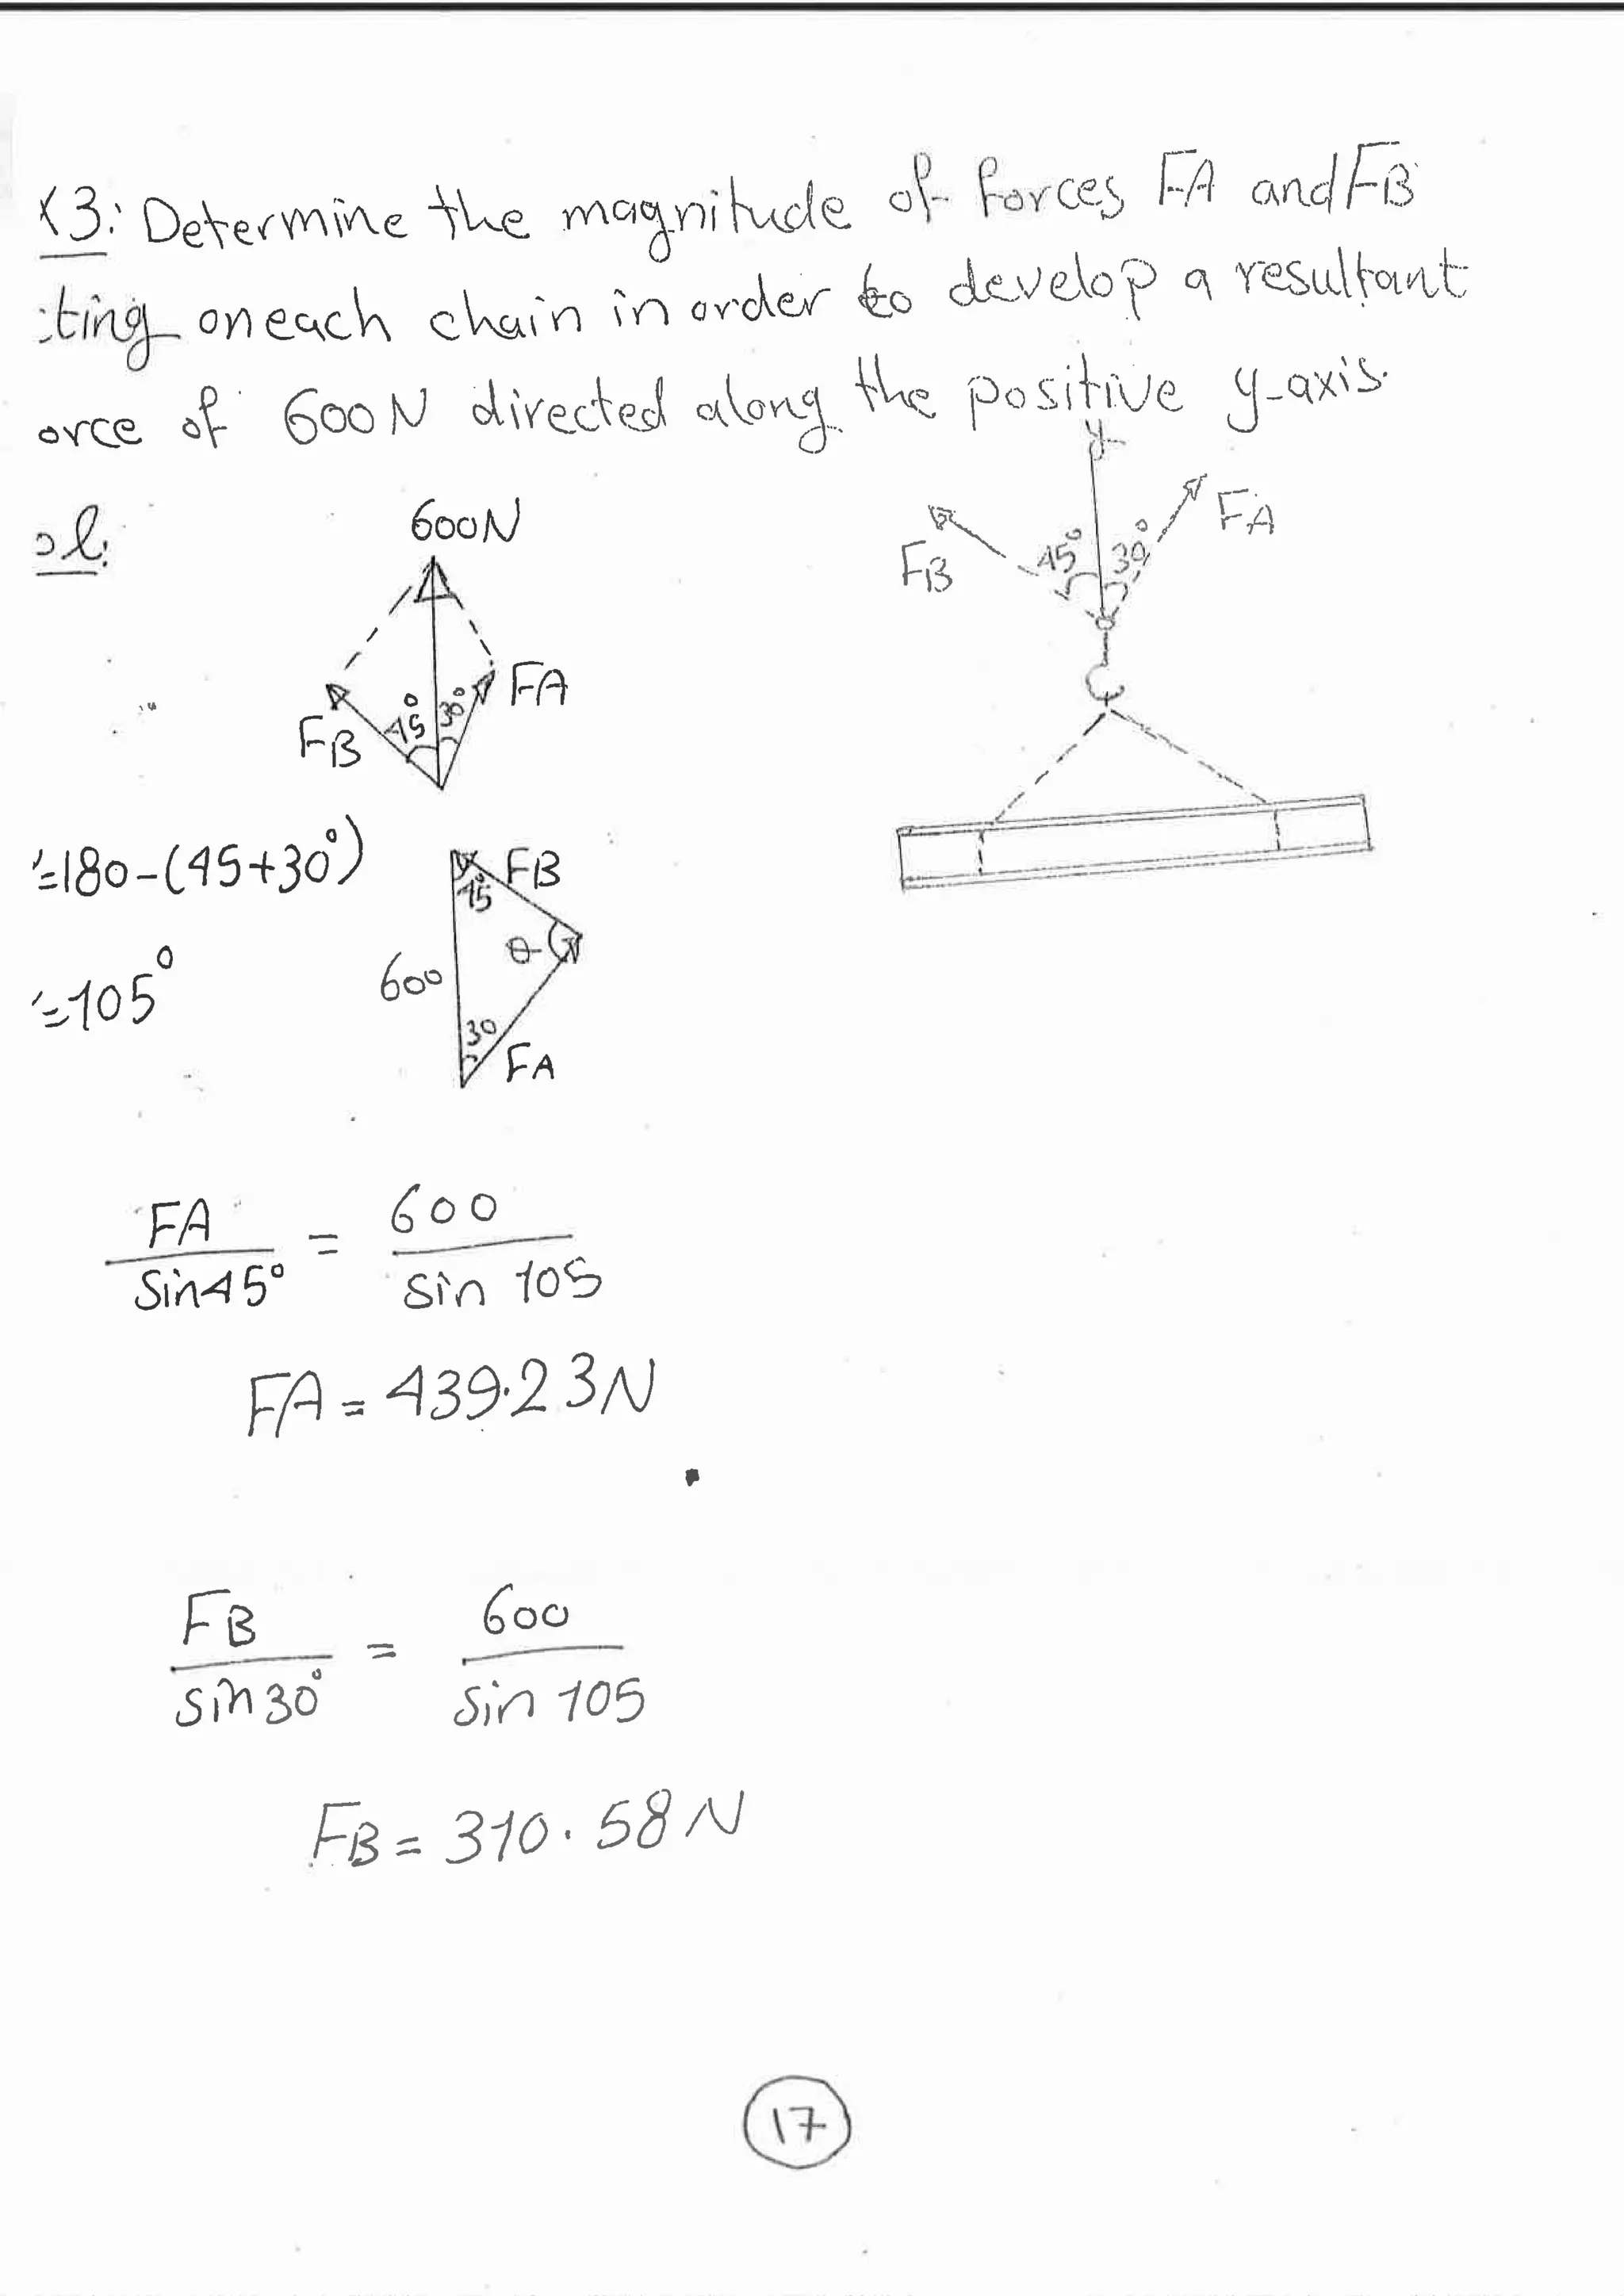 x3: Determine the magnitude of forces FA and FB
ting on each chain in order to develop a resultant
orce of 600N directed along the positive y-axis.
ol:
600N
FB 45° 30° FA
y
FB 45° 30° FA
=180-(45+30°)
=105°
FB
45°
θ
600
30
FA
FA / Sin45° = 600 / Sin 105
FA = 439.23N
FB / Sin30° = 600 / Sin 105
FB = 310.58N
17